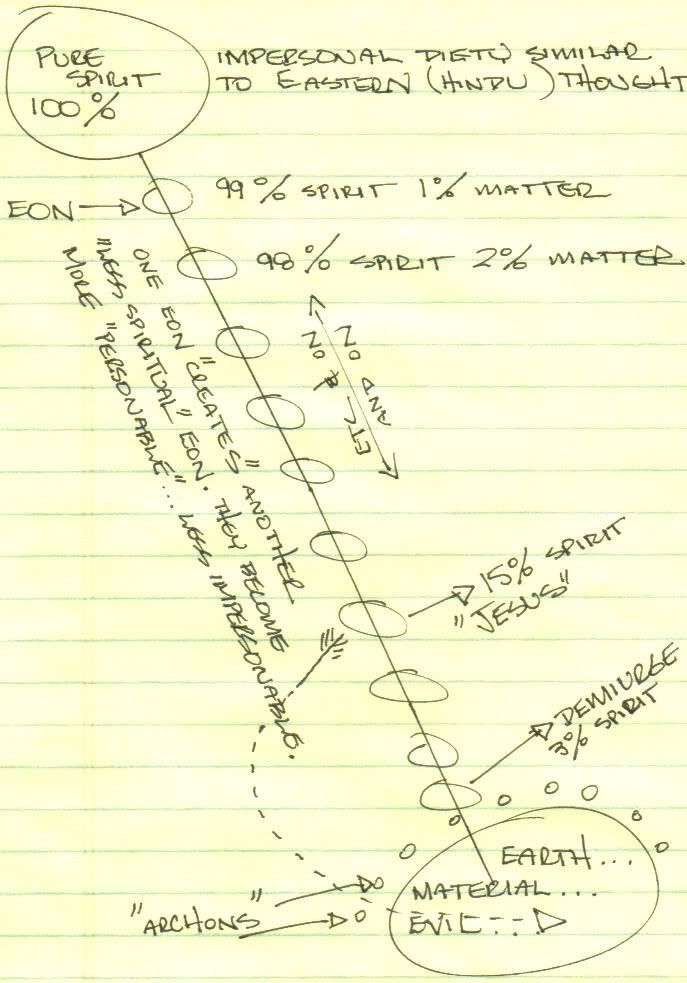 PURE
SPIRIT
100%
IMPERSONAL DIETY SIMILAR
TO EASTERN (HINDU) THOUGHT
EON
99% SPIRIT 1% MATTER
98% SPIRIT 2% MATTER
ONE EON "CREATES" ANOTHER
"LESS SPIRITUAL" EON. THEY BECOME
MORE "PERSONABLE"... LESS IMPERSONABLE.
AND ON
ETC & ON
15% SPIRIT
"JESUS"
DEMIURGE
3% SPIRIT
EARTH...
MATERIAL...
EVIL
"ARCHONS"